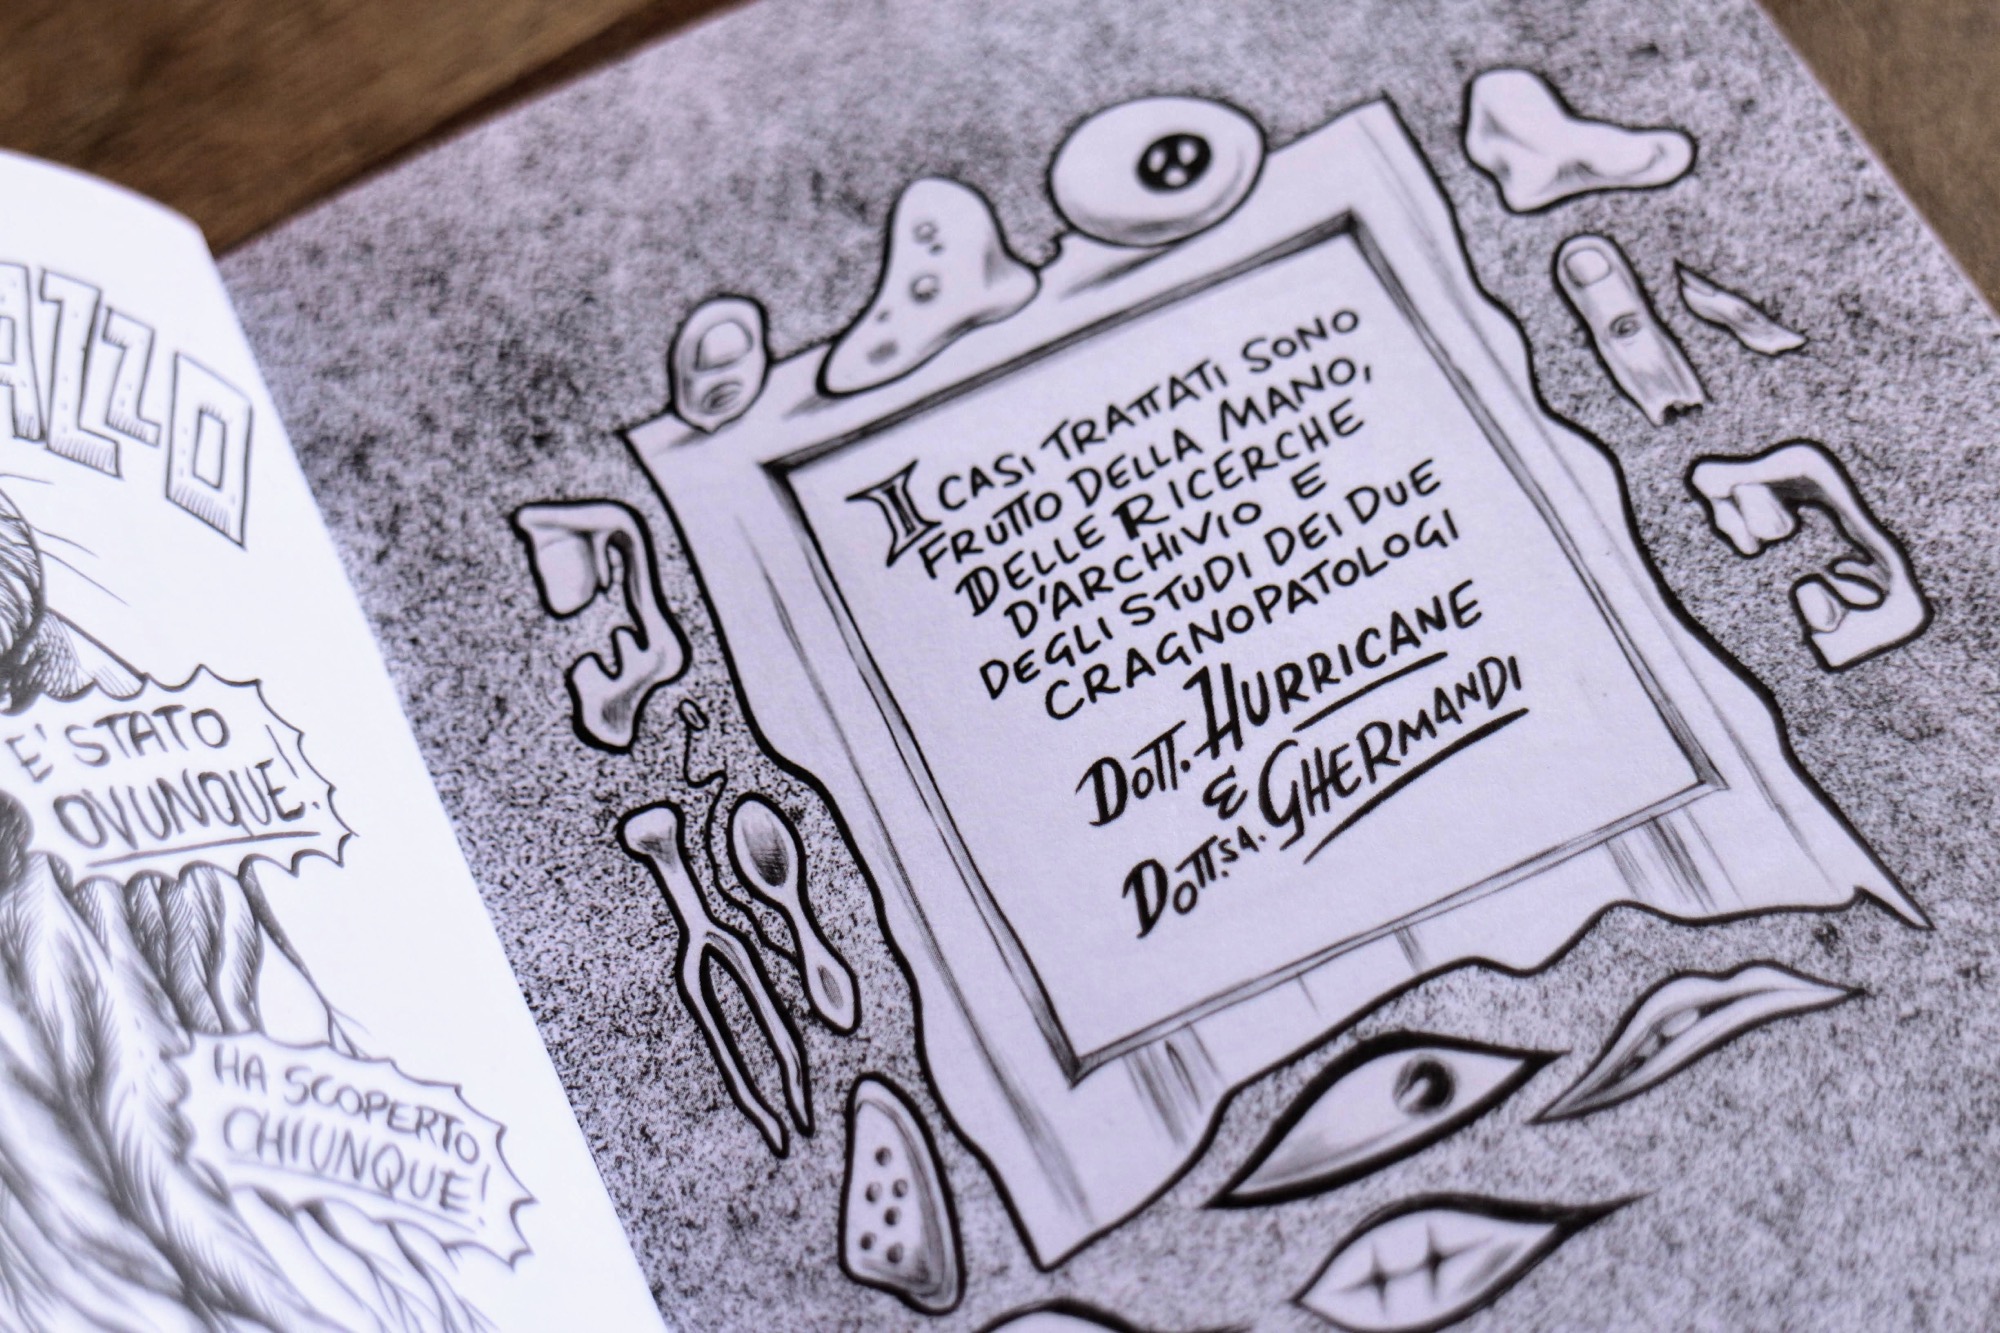 AZZO
E' STATO
OVUNQUE!
HA SCOPERTO
CHIUNQUE!
I CASI TRATTATI SONO
FRUTTO DELLA MANO,
DELLE RICERCHE
D'ARCHIVIO E
DEGLI STUDI DEI DUE
CRAGNOPATOLOGI
DOTT. HURRICANE
&
DOTT.SA. GHERMANDI